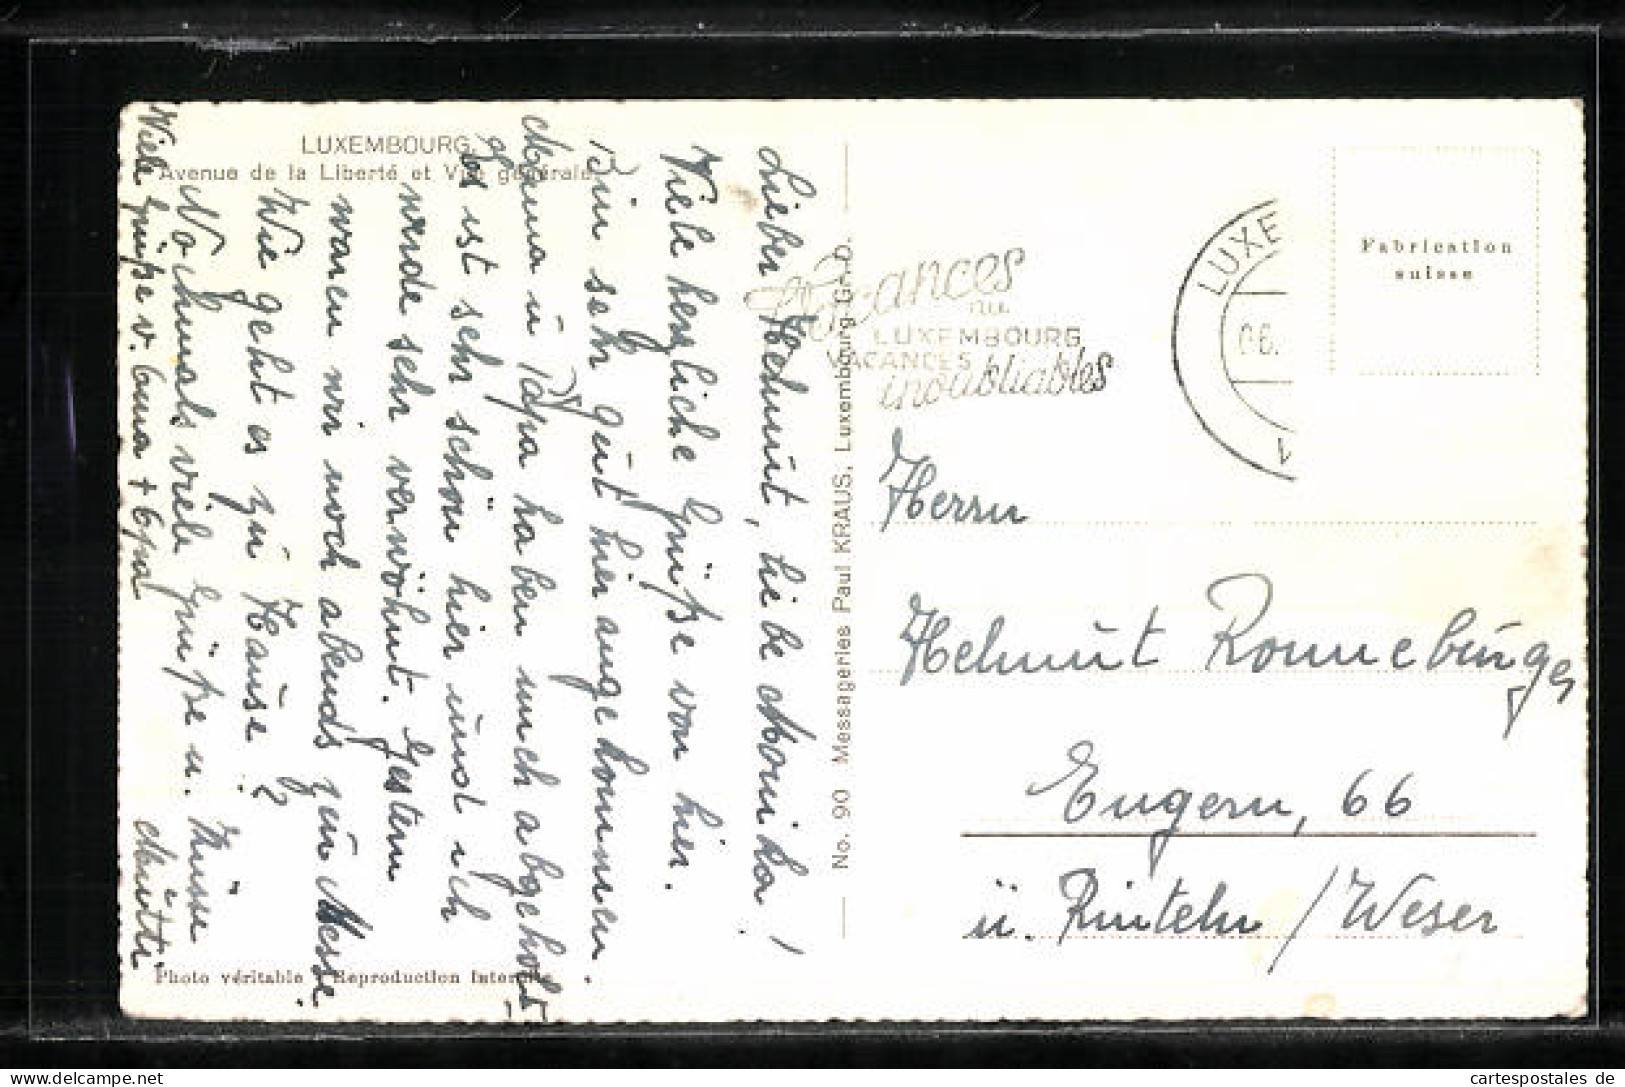 LUXEMBOURG.
Avenue de la Liberté et Vue générale.
Lieber Helmut, liebe Monika!
Viele herzliche Grüße von hier.
Bin sehr gut hier angekommen.
Mama u. Papa haben mich abgeholt.
Es ist sehr schön hier und ich
werde sehr verwöhnt. Gestern
waren wir noch abends zur Messe.
Wie geht es zu Hause?
Nochmals viele Grüße u. Küsse
Mutti
Viele Grüße v. Oma + Opa
Photo véritable Reproduction Interdite
No. 90 Messageries Paul KRAUS, Luxembourg-Gr.-D.
Vacances
au
LUXEMBOURG
VACANCES
inoubliables
LUXE
06.
1
Fabrication
suisse
Herrn
Helmut Ronneburger
Engern, 66
ü. Rinteln/Weser
www.cartespostales.de
cartespostales de